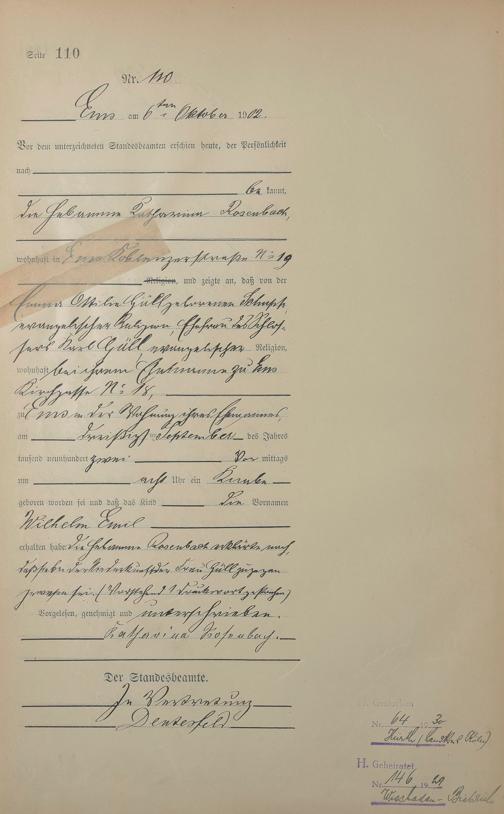 Seite 110
Nr. 110
Ems am 6ten Oktober 1902.
Vor dem unterzeichneten Standesbeamten erschien heute, der Persönlichkeit
nach
bekannt,
die Hebamme Katharina Rosenbach,
wohnhaft in Ems Koblenzerstraße No 19
Religion, und zeigte an, daß von der
Emma Ottilie Güll geborenen
evangelischer Religion, Ehefrau des Schlos-
sers Karl Güll, evangelischer Religion,
wohnhaft bei ihrem Ehemanne zu Ems
Kirchgasse No 18,
zu Ems in der Wohnung ihres Ehemannes,
am dreißigsten September des Jahres
tausend neunhundert zwei Vormittags
um acht Uhr ein Knabe
geboren worden sei und daß das Kind die Vornamen
Wilhelm Emil
erhalten habe. Die Hebamme Rosenbach erklärte noch,
daß sie bei der Niederkunft der Frau Güll zugegen
gewesen sei. (Vorstehend 1 Druckwort gestrichen)
Vorgelesen, genehmigt und unterschrieben.
Katharina Rosenbach.
Der Standesbeamte.
In Vertretung
Nr. 64 1930
Hürth (Landkr. Köln)
H. Geheiratet
Nr. 146 19
Wiesbaden - Biebrich